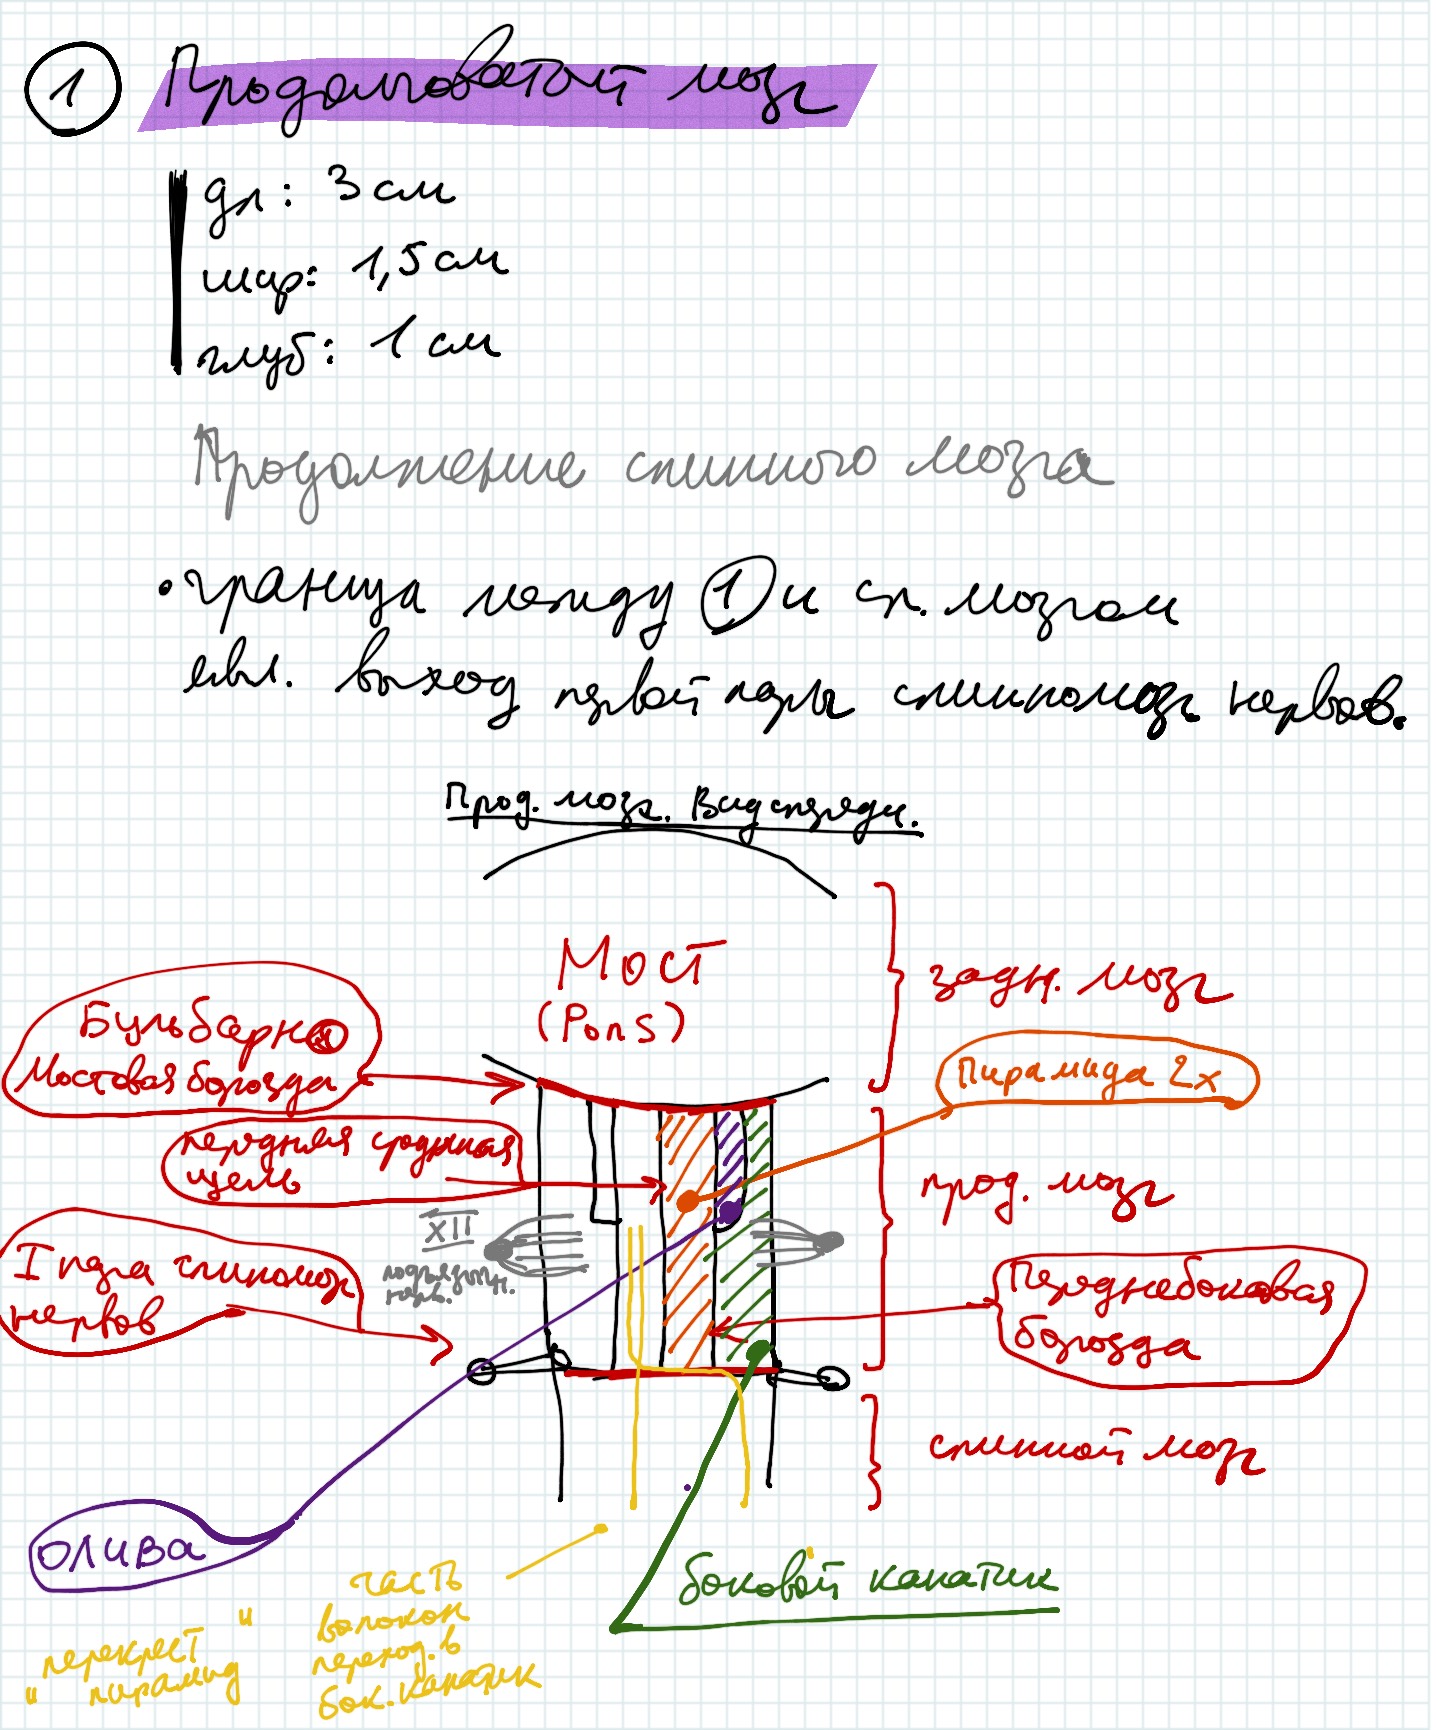 1 Продолговатой мозг
дл: 3 см
шир: 1,5 см
глуб: 1 см
Продолжение спинного мозга
• граница между 1 и сп. мозгом
явл. выход первой пары спинномозг. нервов.
Прод. мозг. Вид спереди.
Мост
(Pons)
задн. мозг
Бульбарно
Мостовая борозда
Пирамида 2х
передняя срединная
щель
прод. мозг
XII
подъязычн.
нерв.
I пара спинномозг
нервов
Переднебоковая
борозда
спинной мозг
олива
боковой канатик
часть
волокон
переход. в
бок. канатик
"перекрест
пирамид"